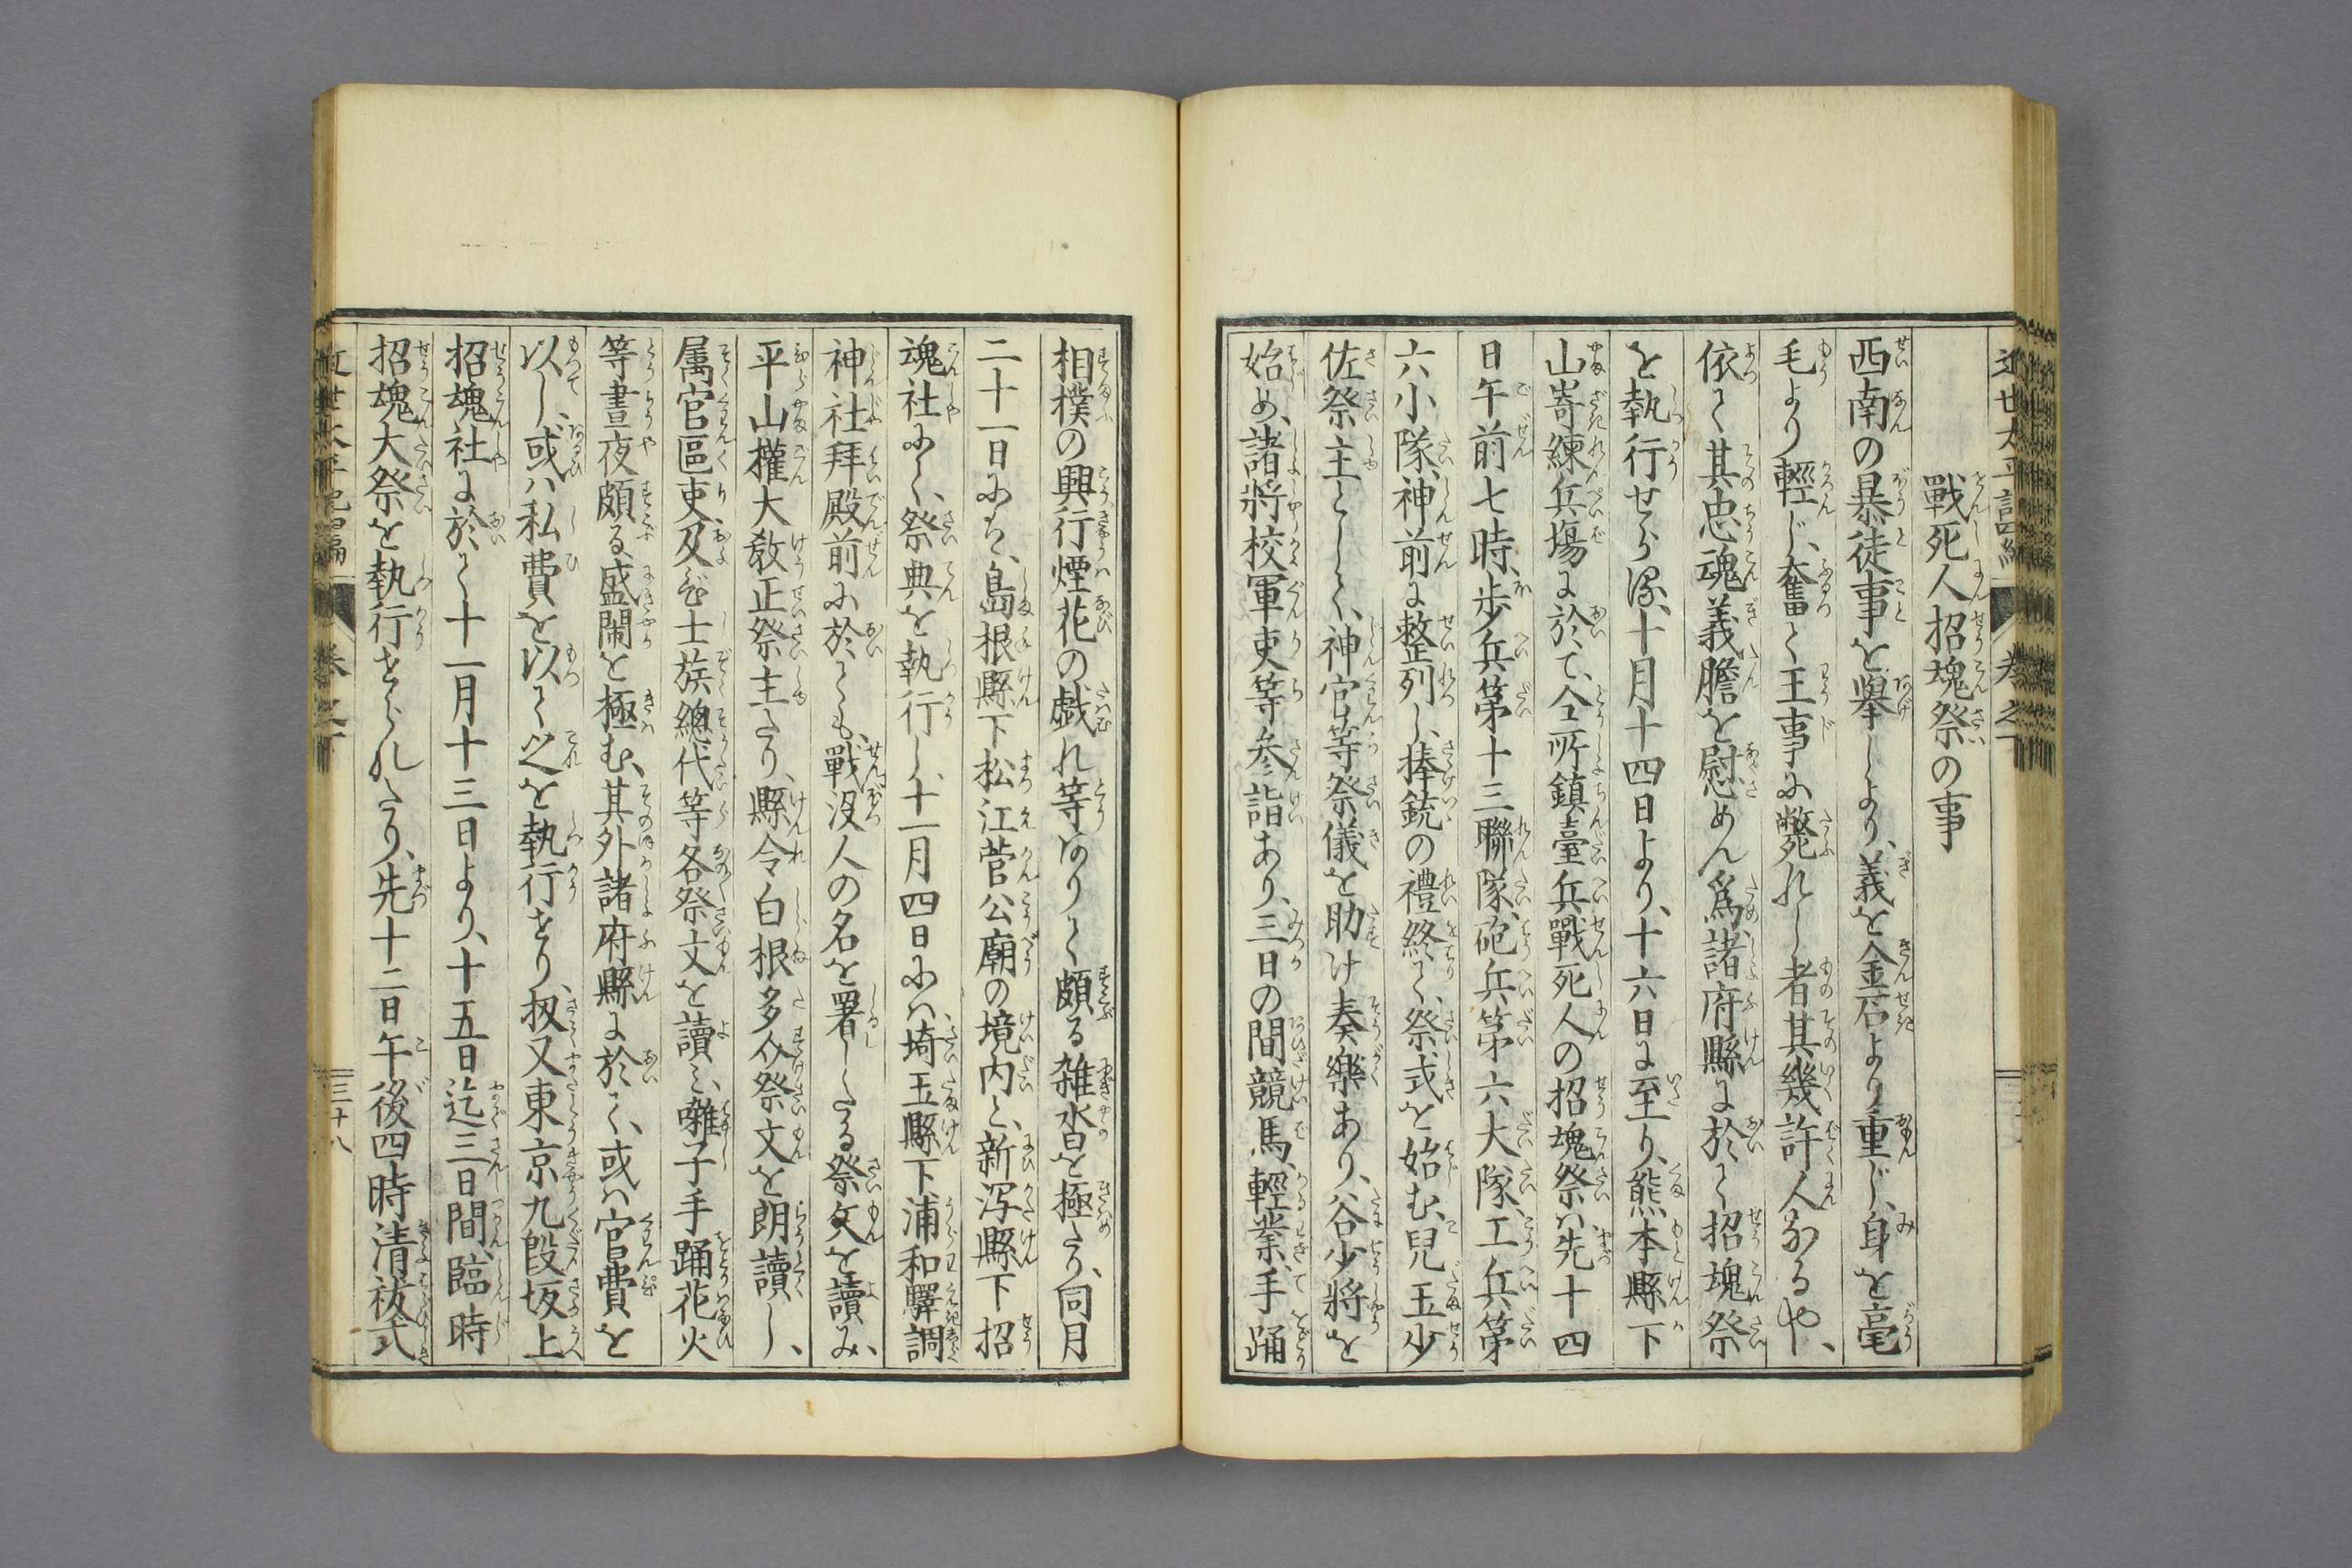 戰死人招魂祭の事
西南の暴徒事を擧しより、義を金石より重じ、身を毫
毛より輕じ、奮て王事に斃れし者其幾許人なるや、
依て其忠魂義膽を慰めん爲諸府縣に於て招魂祭
を執行せらる、十月十四日より、十六日に至り、熊本縣下
山嵜練兵塲に於て、仝所鎮臺兵戰死人の招魂祭ハ先十四
日午前七時、歩兵第十三聯隊、砲兵第六大隊、工兵第
六小隊、神前に整列し、捧銃の禮終て、祭式を始む、兒玉少
佐祭主として、神官等祭儀を助け奏樂あり、谷少將を
始め、諸將校軍吏等参詣あり、三日の間競馬、輕業、手踊
相撲の興行煙花の戯れ等ありて頗る雑沓を極たり、同月
二十一日にも、島根縣下松江菅公廟の境内と、新泻縣下招
魂社にて、祭典を執行し、十一月四日にハ、埼玉縣下浦和驛調
神社拜殿前に於ても、戰没人の名を署したる祭文を讀み、
平山權大敎正祭主たり、縣令白根多助祭文を朗讀し、
属官區吏及び士族總代等各祭文を讀ミ、囃子手踊花火
等晝夜頗る、盛閙を極む、其外諸府縣に於て、或ハ官費を
以し、或ハ私費を以て之を執行せり、扨又東京九段坂上
招魂社に於て十一月十三日より、十五日迄三日間、臨時
招魂大祭を執行せられたり、先十二日午後四時清祓式
近世太平記四編
卷之下
三十八